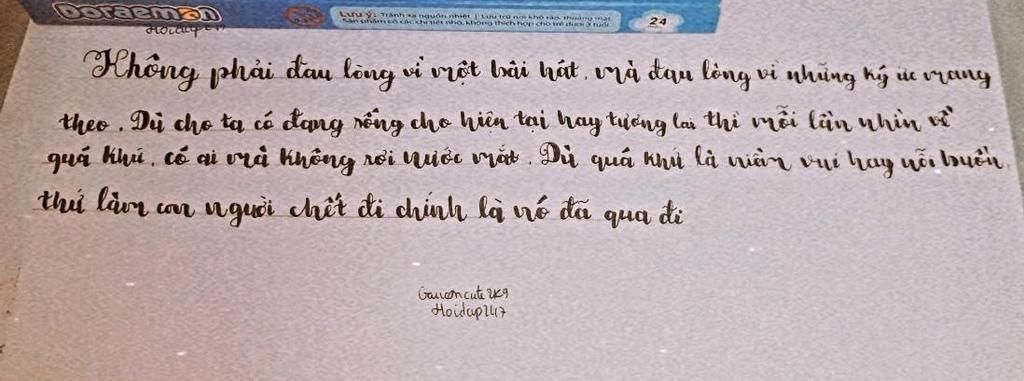 Doraemon
Lưu ý: Tránh xa nguồn nhiệt | Lưu trữ nơi khô ráo, thoáng mát
Sản phẩm có các chi tiết nhỏ, không thích hợp cho trẻ dưới 3 tuổi
24
Không phải đau lòng vì một bài hát, mà đau lòng vì những ký ức mang
theo. Dù cho ta có đang sống cho hiện tại hay tương lai thì mỗi lần nhìn về
quá khứ, có ai mà không rơi nước mắt. Dù quá khứ là niềm vui hay nỗi buồn,
thứ làm con người chết đi chính là nó đã qua đi
Gauomcute2K9
Hoidap247